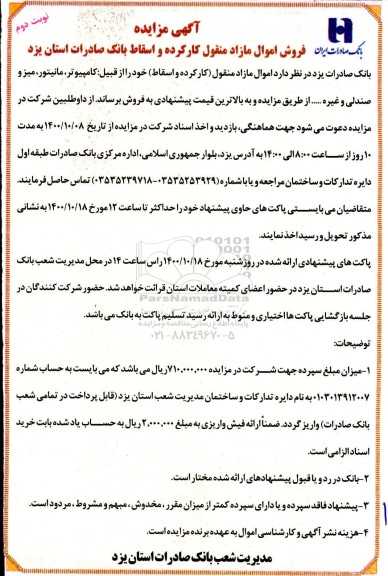 نوبت دوم
بانک صادرات ایران
آگهی مزایده
فروش اموال مازاد منقول کارکرده و اسقاط بانک صادرات استان یزد
بانک صادرات یزد در نظر دارد اموال مازاد منقول (کارکرده و اسقاط) خود را از قبیل: کامپیوتر، مانیتور، میز و
صندلی و غیره ..... از طریق مزایده و به بالاترین قیمت پیشنهادی به فروش برساند. از داوطلبین شرکت در
مزایده دعوت می شود جهت هماهنگی، بازدید و اخذ اسناد شرکت در مزایده از تاریخ ۱۴۰۰/۱۰/۰۸ به مدت
۱۰ روز از ساعت ۸:۰۰ الی ۱۴:۰۰ به آدرس یزد، بلوار جمهوری اسلامی، اداره مرکزی بانک صادرات طبقه اول
دایره تدارکات و ساختمان مراجعه و یا با شماره (۰۳۵۳۵۲۵۳۹۲۹-۰۳۵۳۵۲۳۹۷۱۸) تماس حاصل فرمایند.
متقاضیان می بایستی پاکت های حاوی پیشنهاد خود را حداکثر تا ساعت ۱۲ مورخ ۱۴۰۰/۱۰/۱۸ به نشانی
مذکور تحویل و رسید اخذ نمایند.
پاکت های پیشنهادی ارائه شده در روز شنبه مورخ ۱۴۰۰/۱۰/۱۸ راس ساعت ۱۴ در محل مدیریت شعب بانک
صادرات استان یزد در حضور اعضای کمیته معاملات استان قرائت خواهد شد. حضور شرکت کنندگان در
جلسه بازگشایی پاکت ها اختیاری و منوط به ارائه رسید تسلیم پاکت به بانک می باشد.
ParsNamadData
پایگاه اطلاع رسانی مناقصه و مزایده
۰۲۱-۸۸۳۴۹۶۷۰-۵
توضیحات:
۱-میزان مبلغ سپرده جهت شرکت در مزایده ۷۱۰,۰۰۰,۰۰۰ ریال می باشد که می بایست به حساب شماره
۰۱۰۳۰۱۳۹۱۲۰۰۷ به نام دایره تدارکات و ساختمان مدیریت شعب استان یزد (قابل پرداخت در تمامی شعب
بانک صادرات) واریز گردد. ضمناً ارائه فیش واریزی به مبلغ ۲,۰۰۰,۰۰۰ ریال به حساب یاد شده بابت خرید
اسناد الزامی است.
۲-بانک در رد و یا قبول پیشنهادهای ارائه شده مختار است.
۳-پیشنهاد فاقد سپرده و یا دارای سپرده کمتر از میزان مقرر، مخدوش، مبهم و مشروط، مردود است.
۴-هزینه نشر آگهی و کارشناسی اموال به عهده برنده مزایده است.
مدیریت شعب بانک صادرات استان یزد